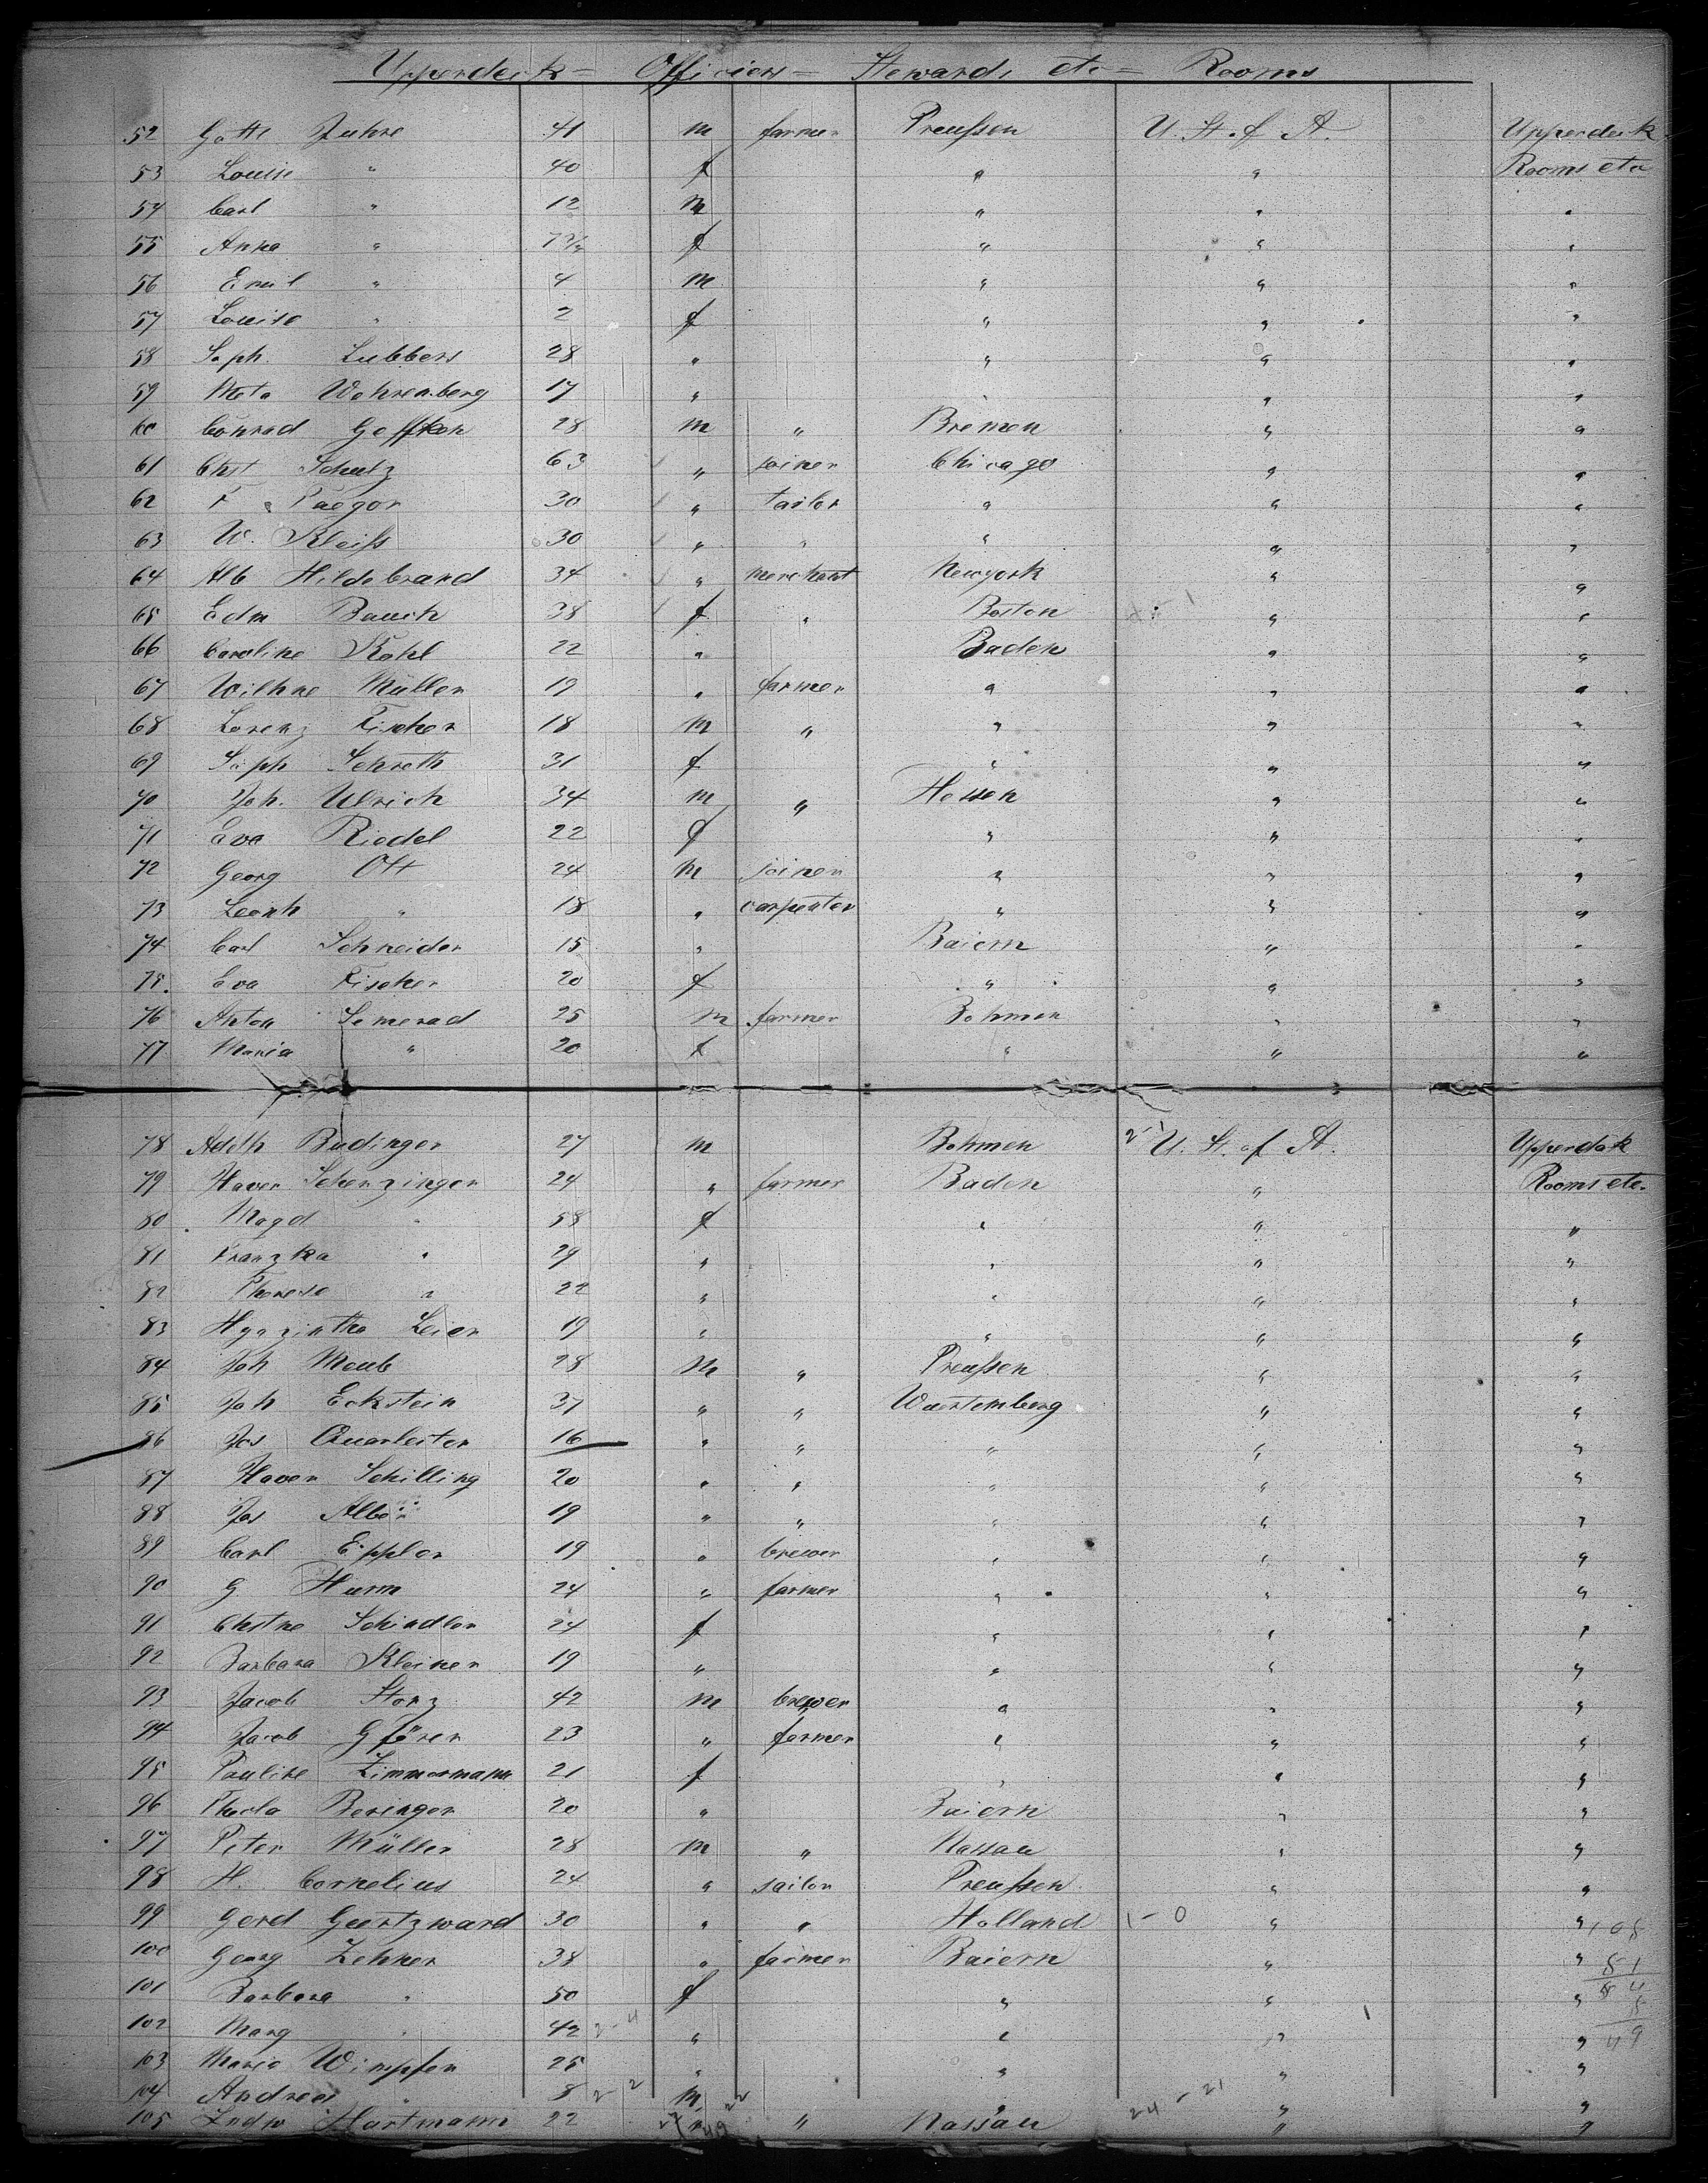 Upperdeck = Officiers = Stewards etc = Rooms
52 Gottl Juhre 41 m farmer Preußen U. St. of A. Upperdeck
53 Louise " 40 f " " Rooms etc
54 Carl " 12 m " " "
55 Anna " f " " "
56 Emil " 4 m " " "
57 Louise " 2 f " " "
58 Soph. Lubbers 28 " " " "
59 Meta Wahrenberg 17 " " " "
60 Conrad Geffken 28 m " Bremen " "
61 Chst Schulz 63 " joiner Chicago " "
62 F. Paegor 30 " tailor " " "
63 W. Kleiß 30 " " " " "
64 Alb Hildebrand 34 " merchant Newyork " "
65 Edm Bauch 38 f " Boston " "
66 Caroline Kohl 22 " Baden " "
67 Wilhne Müller 19 " farmer " " "
68 Lorenz Fischer 18 m " " " "
69 Soph Schroth 31 f " " "
70 Joh. Ulrich 34 m " Hessen " "
71 Eva Riedel 22 f " " "
72 Georg Ott 24 m joiner " " "
73 Leonh " 18 " carpenter " " "
74 Carl Schneider 15 " Baiern " "
75. Eva Fischer 20 f " " "
76 Anton Semerad 25 m farmer Bohmen " "
77 Maria " 20 f " " "
78 Adolh Budinger 27 m Bohmen 2-1 U. St. of A. Upperdek
79 Xaver Schenzinger 24 " farmer Baden " Rooms etc.
80 Magd " 58 f " " "
81 Franzka " 29 " " " "
82 Therese " 22 " " " "
83 Hyazintha Leier 19 " " " "
84 Joh Meub 28 m " Preußen " "
85 Joh Eckstein 37 " " Wuertemberg " "
86 Jos Quarleiter 16 " " " " "
87 Xaver Schilling 20 " " " " "
88 Jos Alber 19 " " " " "
89 Carl Eippler 19 " brewer " " "
90 G Hurm 24 " farmer " " "
91 Chstne Schindler 24 f " " "
92 Barbara Kleiner 19 " " " "
93 Jacob Storz 42 m brewer " " "
94 Jacob Gförer 23 " farmer " " "
95 Pauline Zimmermann 21 f " " "
96 Thecla Beringer 20 " Baiern " "
97 Peter Müller 28 m " Nassau " "
98 H. Cornelius 24 " sailor Preußen " "
99 Gerd Geertzward 30 " " Holland 1-0 " " 108
100 Georg Zehner 38 " farmer Baiern " " 51
101 Barbara " 50 f " " "
102 Marg " 42 2-4 " " " " 49
103 Maria Wimpfen 25 " " " "
104 Andreas " 8 2-2 m " " "
105 Ludw Hartmann 22 " Nassau 24-21 " "